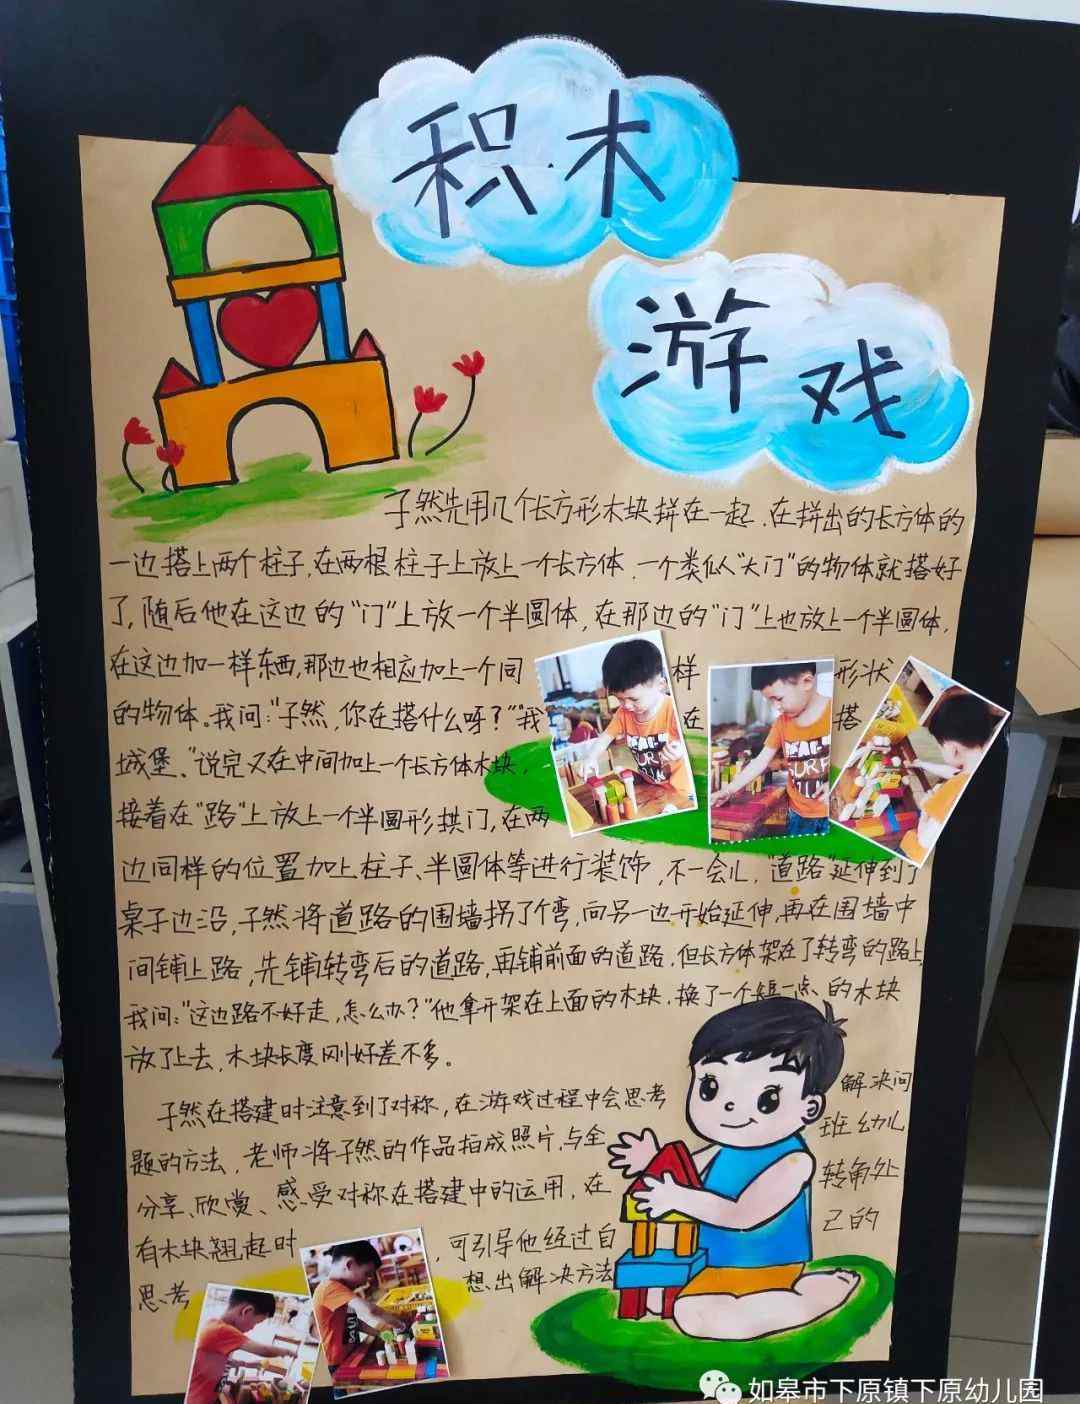 积木
游戏
子然先用几个长方形木块拼在一起,在拼出的长方体的
一边搭上两个柱子,在两根柱子上放上一个长方体,一个类似“大门”的物体就搭好
了,随后他在这边的“门”上放一个半圆体,在那边的“门”上也放上一个半圆体,
在这边加一样东西,那边也相应加上一个同样形状
的物体。我问:“子然,你在搭什么呀?”“我在搭
城堡。”说完又在中间加上一个长方体木块,
接着在“路”上放上一个半圆形拱门,在两
边同样的位置加上柱子、半圆体等进行装饰,不一会儿,“道路”延伸到了
桌子边沿,子然将道路的围墙拐了个弯,向另一边开始延伸,再在围墙中
间铺上路,先铺转弯后的道路,再铺前面的道路,但长方体架在了转弯的路上,
我问:“这边路不好走,怎么办?”他拿开架在上面的木块,换了一个短一点、的木块
放了上去,木块长度刚好差不多。
子然在搭建时注意到了对称,在游戏过程中会思考解决问
题的方法,老师将子然的作品拍成照片,与全班幼儿
分享、欣赏、感受对称在搭建中的运用,在转角处
有木块翘起时,可引导他经过自己的
思考想出解决方法
如皋市下原镇下原幼儿园